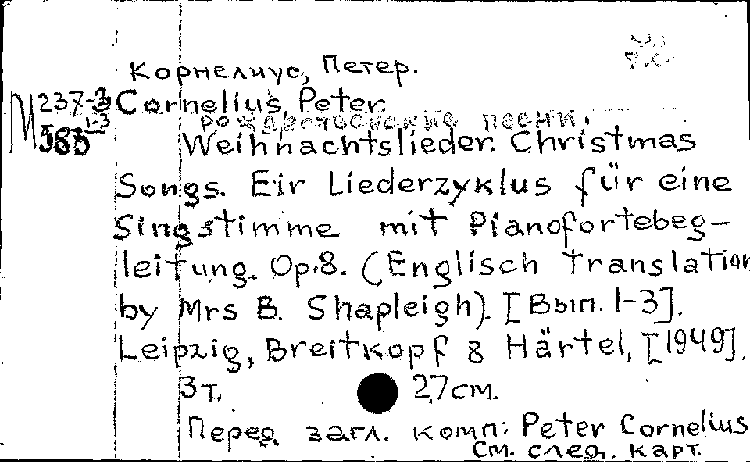 Корнелиус, Петер.
М 237-3
Cornelius, Peter.
1-3
рождественские песни.
Weihnachtslieder. Christmas
Songs. Eir Liederzyklus für eine
Singstimme mit Pianofortebeg-
leitung. Op.8. (Englisch translation
by Mrs B. Shapleigh). [Вып. 1-3].
Leipzig, Breitkopf & Härtel, [1949].
3 т. 27 см.
Перед загл. комп: Peter Cornelius
См. след. карт.